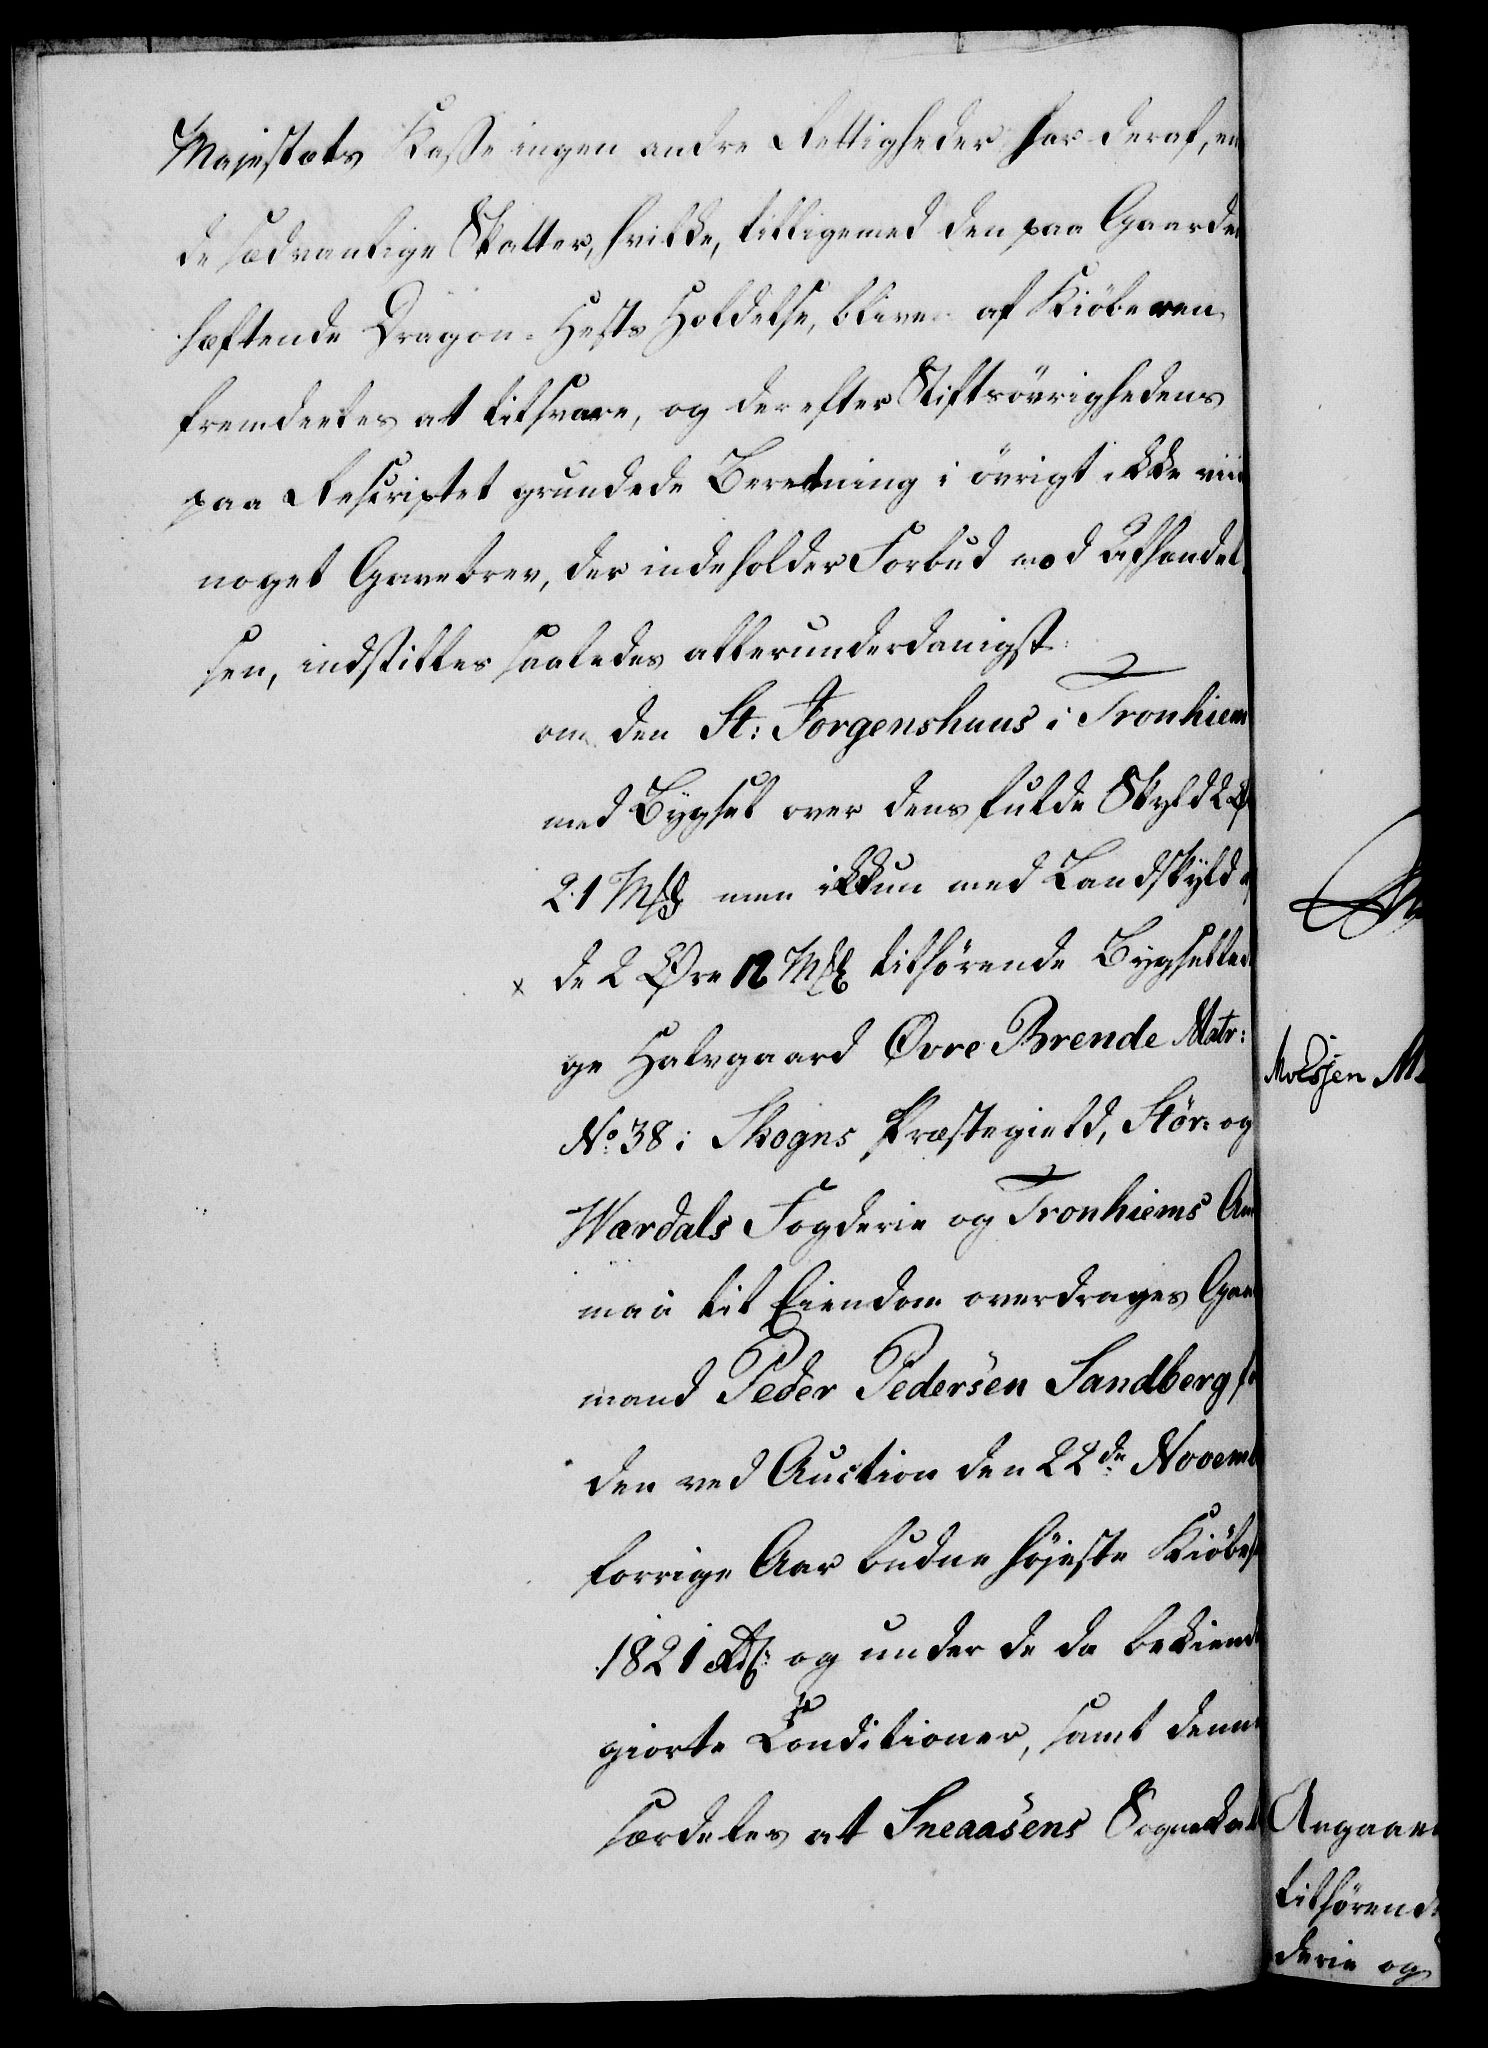 Majestæts Kasse ingen andre Rettigheder har deraf, en
de sædvanlige Skatter, hvilke, tilligemed den paa Gaarden
hæftende Dragon-Hests Holdelse, bliver af Kiöberen
fremdeeles at tilsvare, og derefter Stiftsövrighedens
paa Rescriptet grundede Beretning i övrigt ikke
noget Gavebrev, der indeholder Forbud mod Afhændel-
sen, indstilles saaledes allerunderdanigst:
om den St: Jorgenshuus i Tronhiem
med Bygsel over dens fulde Skyld 2
21 Mkl men ikkun med Landskyld af
x de 2 Øre 12 Mkl tilhørende Bygsel
ge Halvgaard Øvre Brende Matr:
No 38 i Skogns Præstegield, Stör- og
Værdals Fogderie og Tronhiems Am
maa til Eiendom overdrages Gaar
mand Peder Pedersen Sandberg for
den ved Auction den 22de Novemb
forrige Aar budne højeste Kiöbe
1821 Rd: og under de da bekiendt
giorte Conditioner, samt denne
særdeles at Sneaasens Sognekald
Moesjen M
Angaaen
tilhörend
derie og